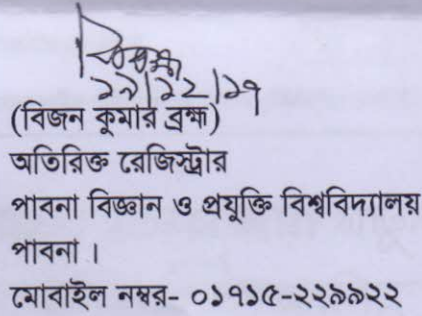 (বিজন কুমার ব্রহ্ম)
অতিরিক্ত রেজিস্ট্রার
পাবনা বিজ্ঞান ও প্রযুক্তি বিশ্ববিদ্যালয়
পাবনা ।
মোবাইল নম্বর- ০১৭১৫-২২৯৯২২